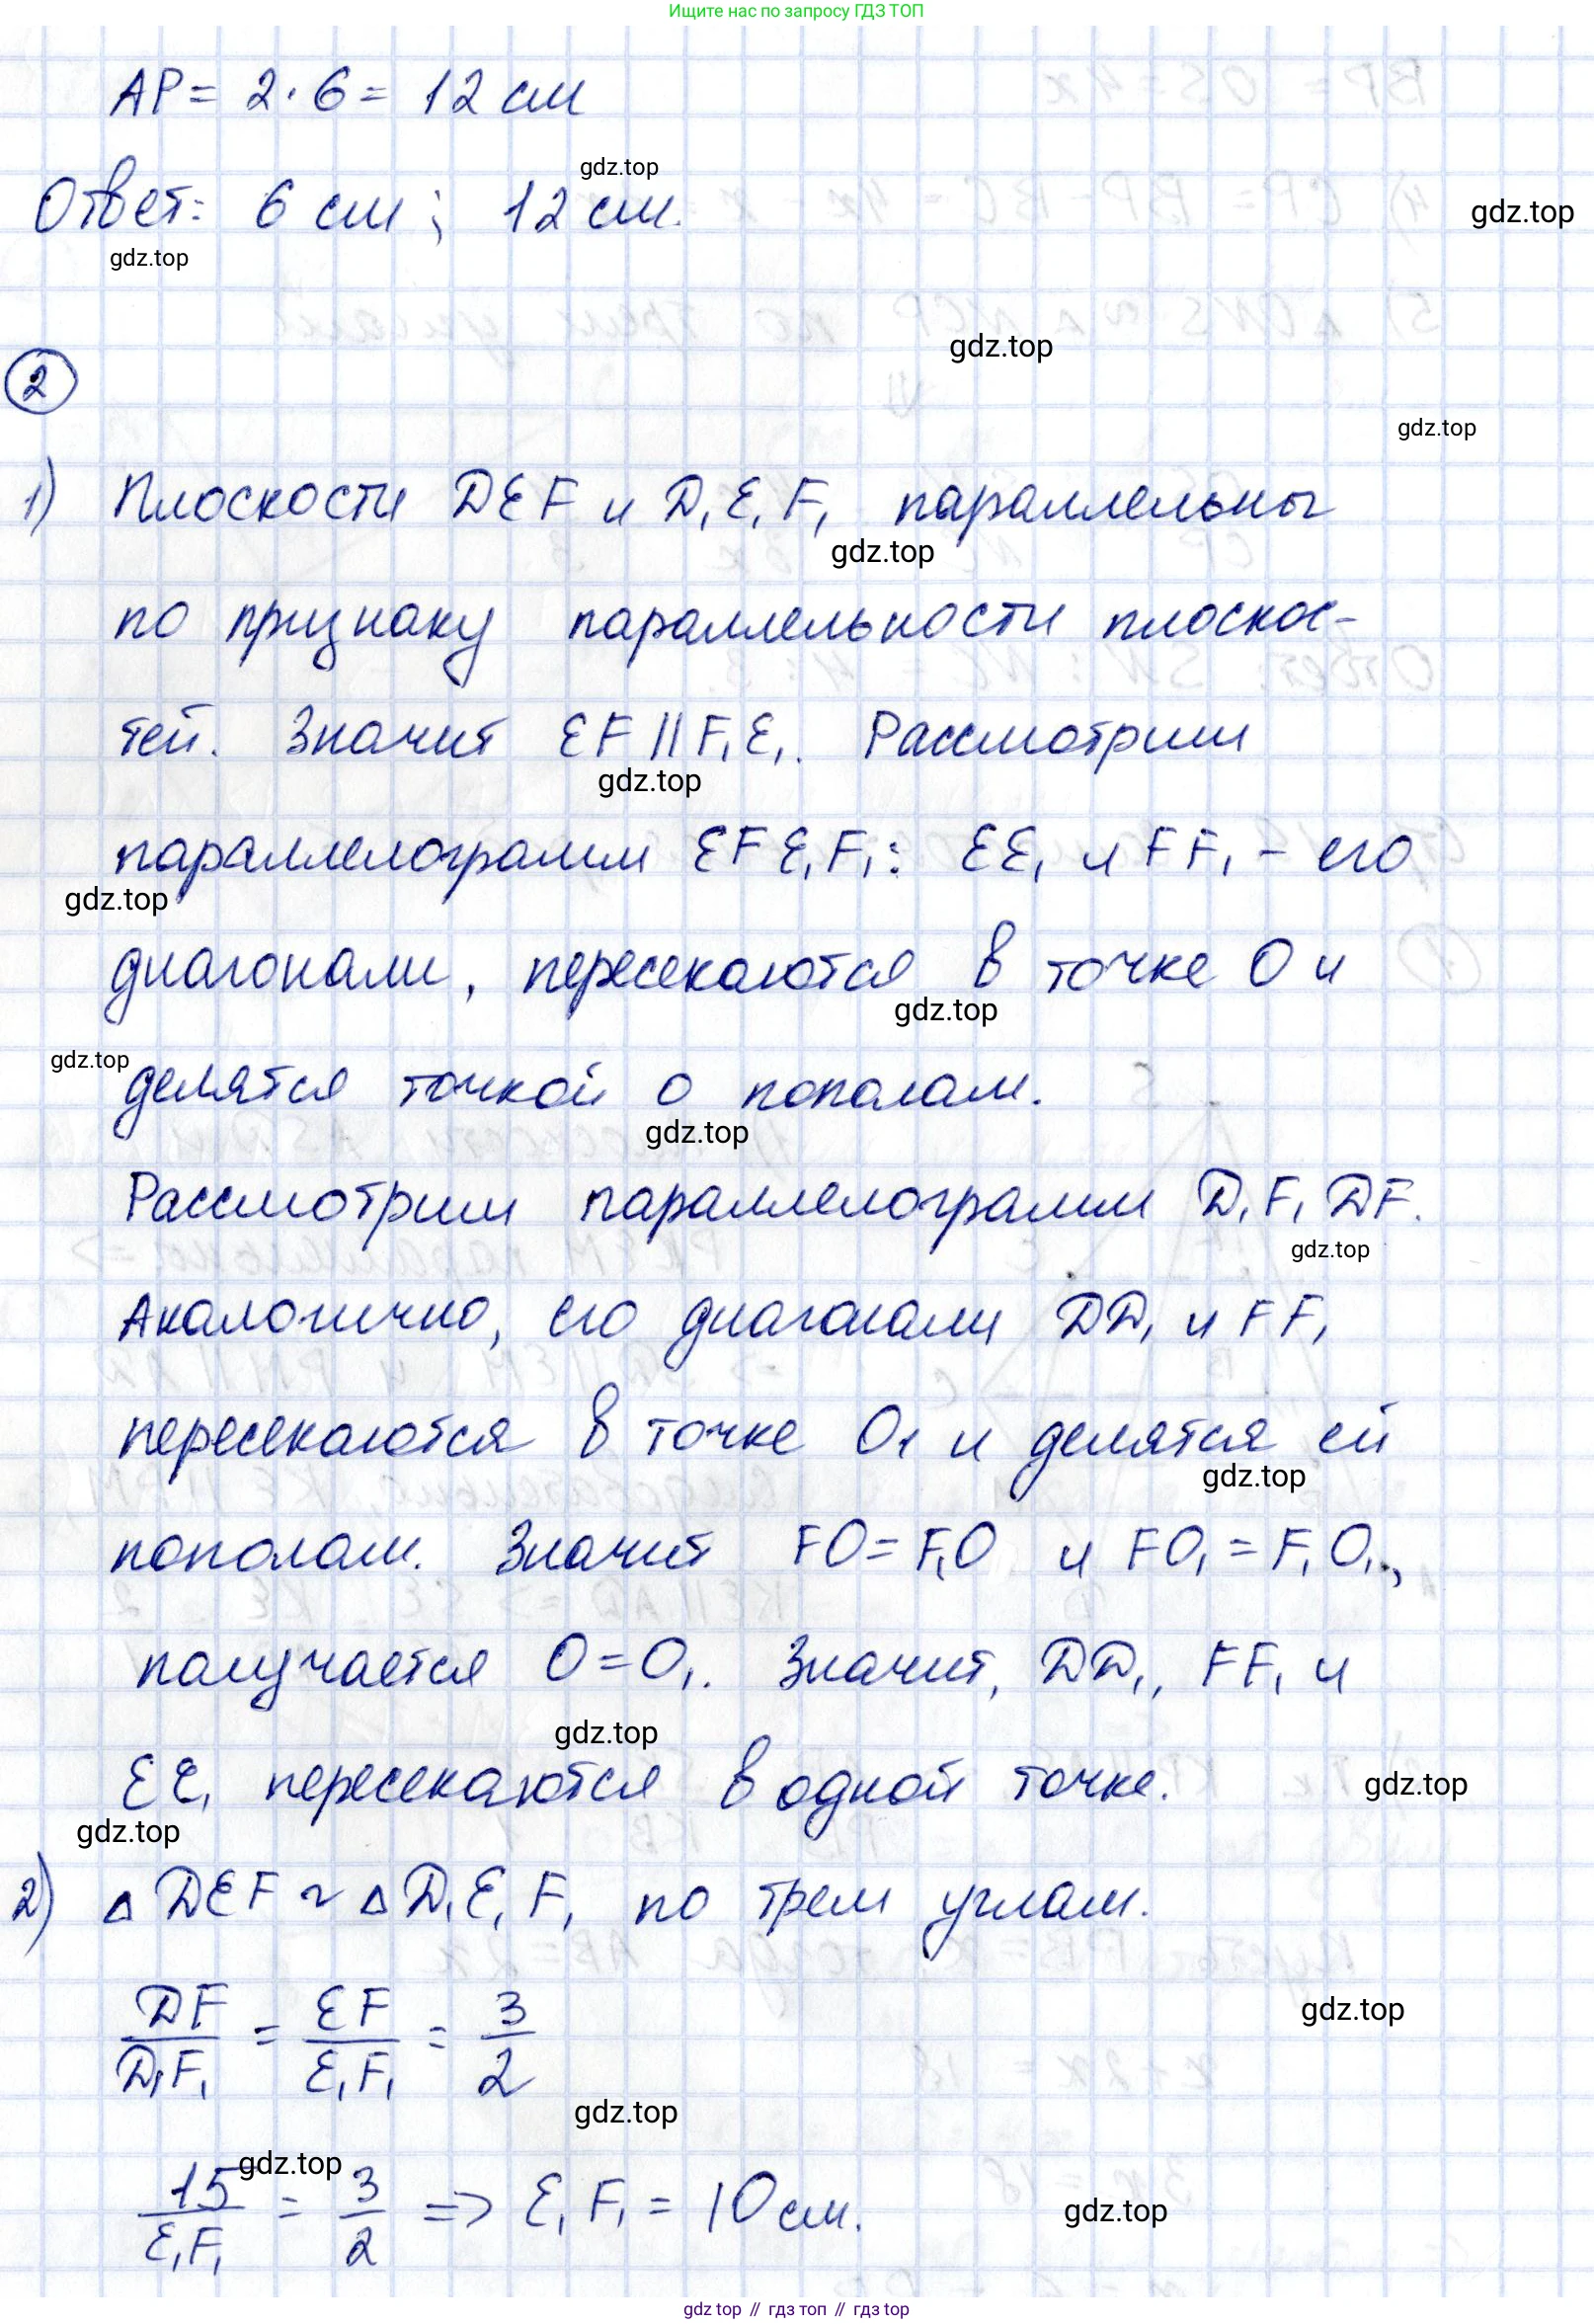 Ищите нас по запросу ГДЗ ТОП
AP = 2 · 6 = 12 см
gdz.top
Ответ: 6 см ; 12 см.
gdz.top
gdz.top
gdz.top
2
gdz.top
1) Плоскости DEF и D₁E₁F₁ параллельны
gdz.top
по признаку параллельности плоскос-
тей. Значит EF || F₁E₁. Рассмотрим
gdz.top
параллелограмм EFE₁F₁: EE₁ и FF₁ - его
gdz.top
диагонали, пересекаются в точке O и
gdz.top
gdz.top
делятся точкой о пополам.
gdz.top
Рассмотрим параллелограмм D₁F₁DF.
gdz.top
Аналогично, его диагонали DD₁ и FF₁
пересекаются в точке O₁ и делятся ей
gdz.top
пополам. Значит FO = F₁O и FO₁ = F₁O₁,
получается O = O₁. Значит, DD₁, FF₁ и
gdz.top
EE₁ пересекаются в одной точке.
gdz.top
gdz.top
2) △DEF ~ △D₁E₁F₁ по трем углам.
DF/D₁F₁ = EF/E₁F₁ = 3/2
gdz.top
gdz.top
gdz.top
15/E₁F₁ = 3/2 => E₁F₁ = 10 см.
gdz.top
gdz.top // гдз топ // гдз top